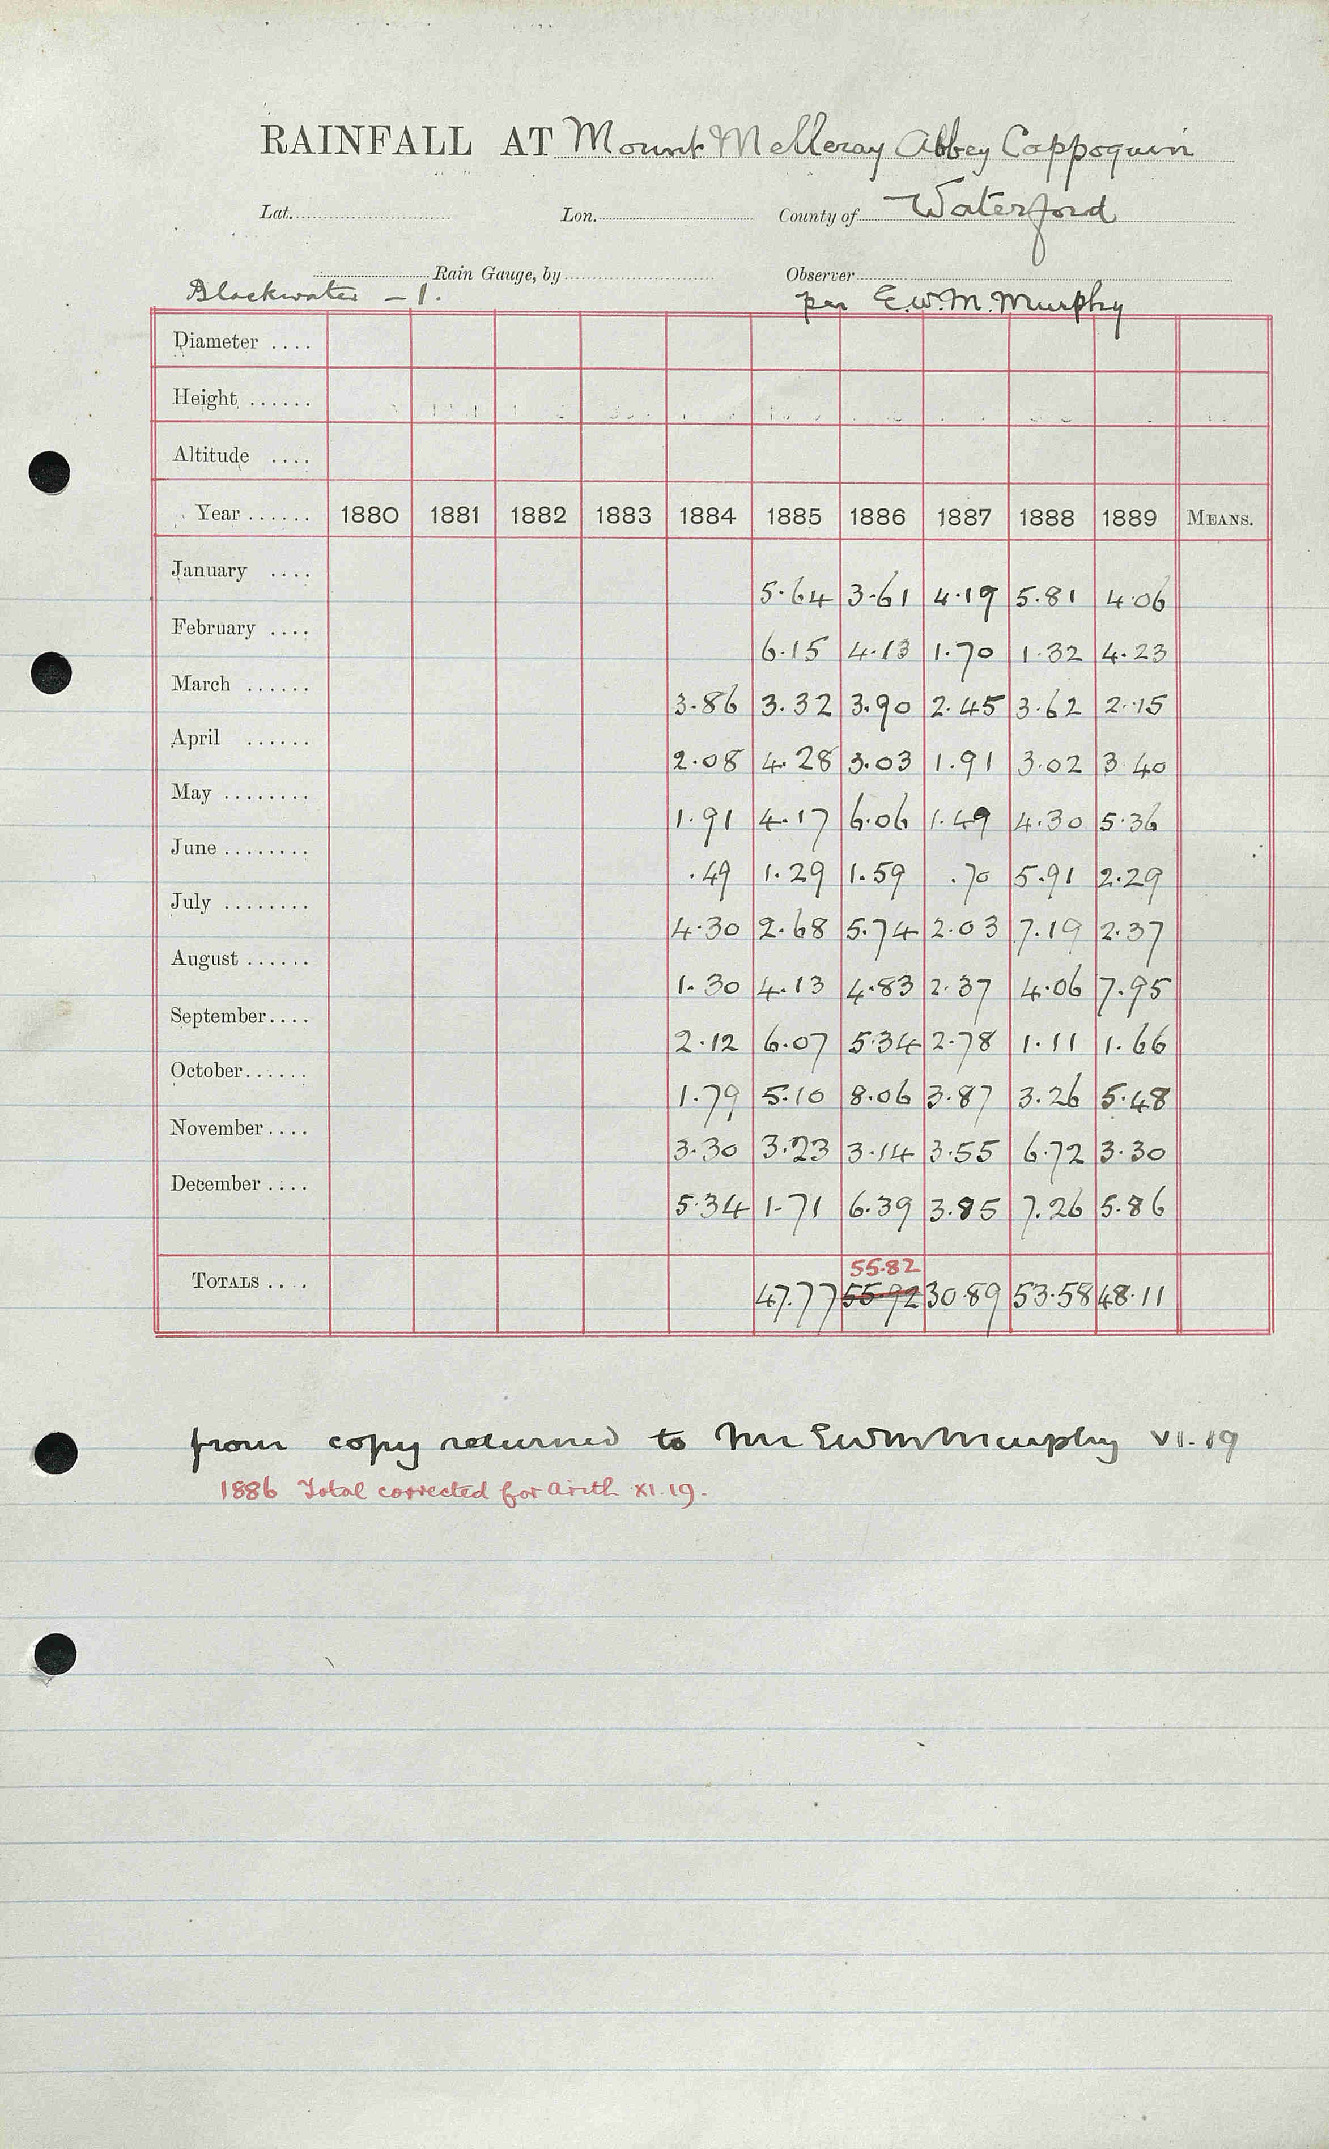 RAINFALL AT Mount Melleray Abbey Cappoquin
Lat. Lon. County of Waterford
Rain Gauge, by Observer
Blackwater – 1. per E.W.M. Murphy
Diameter ....
Height ......
Altitude ....
Year ...... 1880 1881 1882 1883 1884 1885 1886 1887 1888 1889 MEANS.
January .... 5.64 3.61 4.19 5.81 4.06
February .... 6.15 4.13 1.70 1.32 4.23
March ...... 3.86 3.32 3.90 2.45 3.62 2.15
April ...... 2.08 4.28 3.03 1.91 3.02 3 40
May ........ 1.91 4.17 6.06 1.49 4.30 5.36
June ........ .49 1.29 1.59 .70 5.91 2.29
July ........ 4.30 2.68 5.74 2.03 7.19 2.37
August ...... 1.30 4.13 4.83 2.37 4.06 7.95
September.... 2.12 6.07 5.34 2.78 1.11 1.66
October...... 1.79 5.10 8.06 3.87 3.26 5.48
November .... 3.30 3.23 3.14 3.55 6.72 3.30
December .... 5.34 1.71 6.39 3.85 7.26 5.86
55.82
TOTALS .... 47.77 55.92 30.89 53.58 48.11
from copy returned to Mr E W M Murphy VI. 19
1886 Total corrected for arith XI. 19.